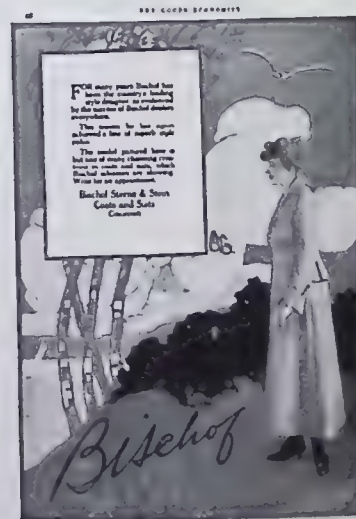 DRY GOODS ECONOMIST
FOR many years Bischof has
been the country's leading
style designer as evidenced
by the success of Bischof dealers
everywhere.
This season he has again
achieved a line of superb style
value.
The model pictured here is
but one of many charming creations
in coats and suits, which
Bischof salesmen are showing.
Write for an appointment.
Bischof Sterne & Stein
Coats and Suits
Cincinnati
Bischof